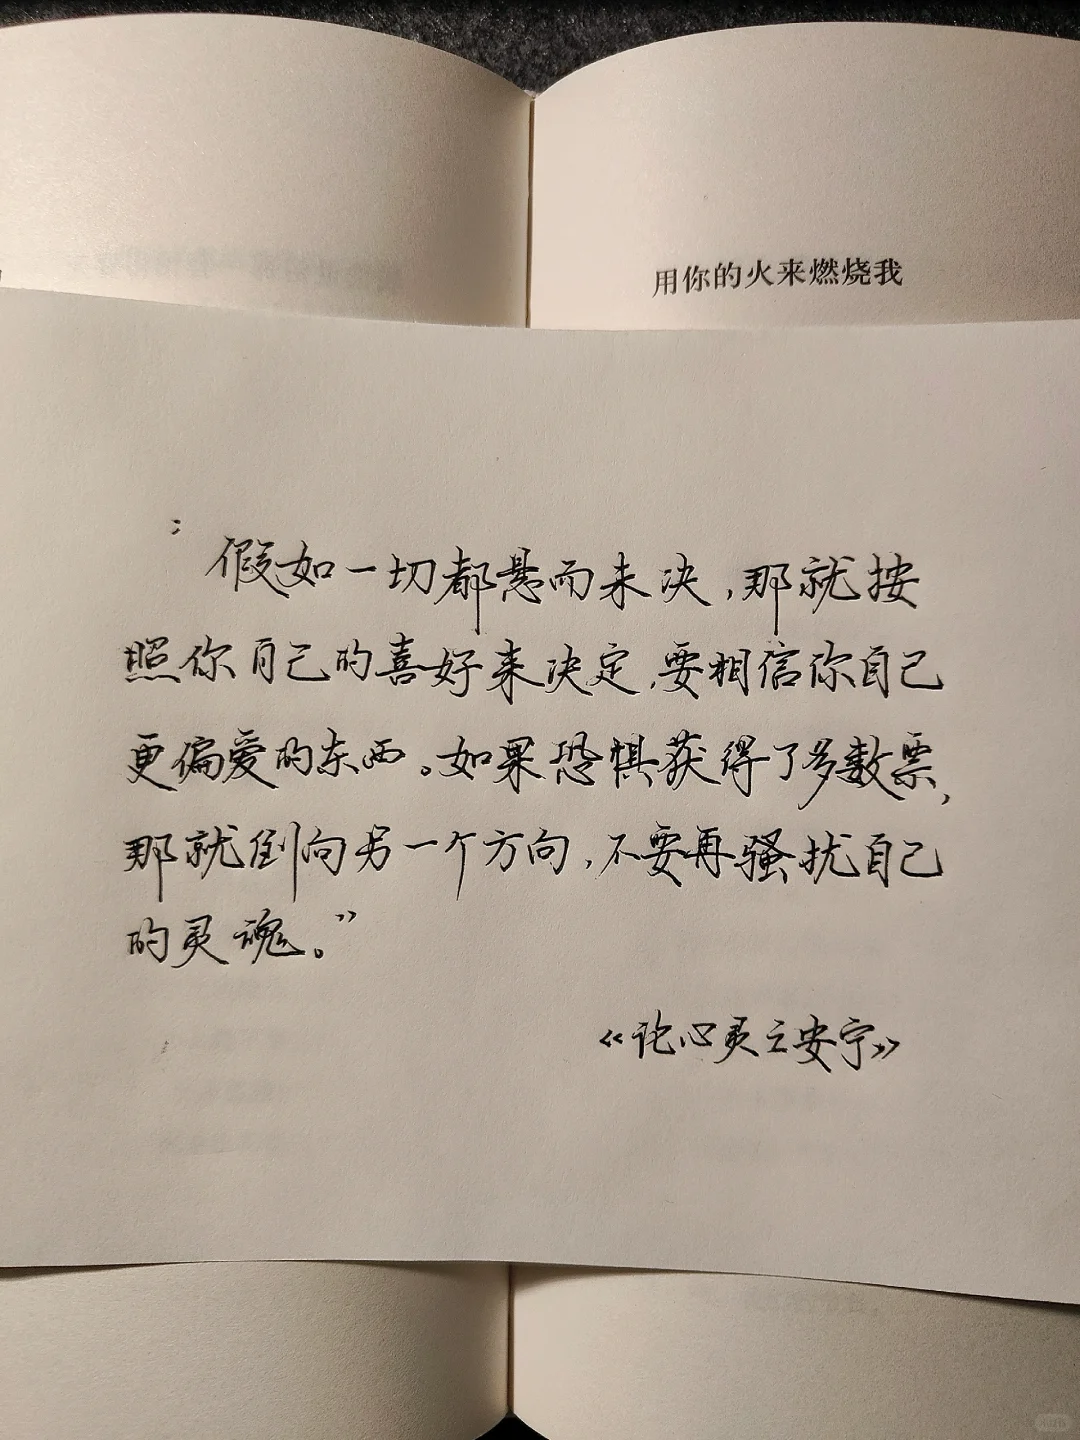 用你的火来燃烧我
“假如一切都悬而未决，那就按
照你自己的喜好来决定，要相信你自己
更偏爱的东西。如果恐惧获得了多数票，
那就倒向另一个方向，不要再骚扰自己
的灵魂。”
《论心灵之安宁》